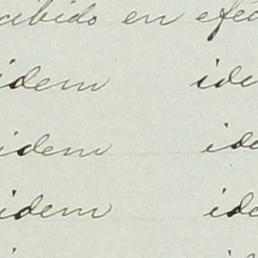 cibido en efec
idem ide
idem ide
idem ide